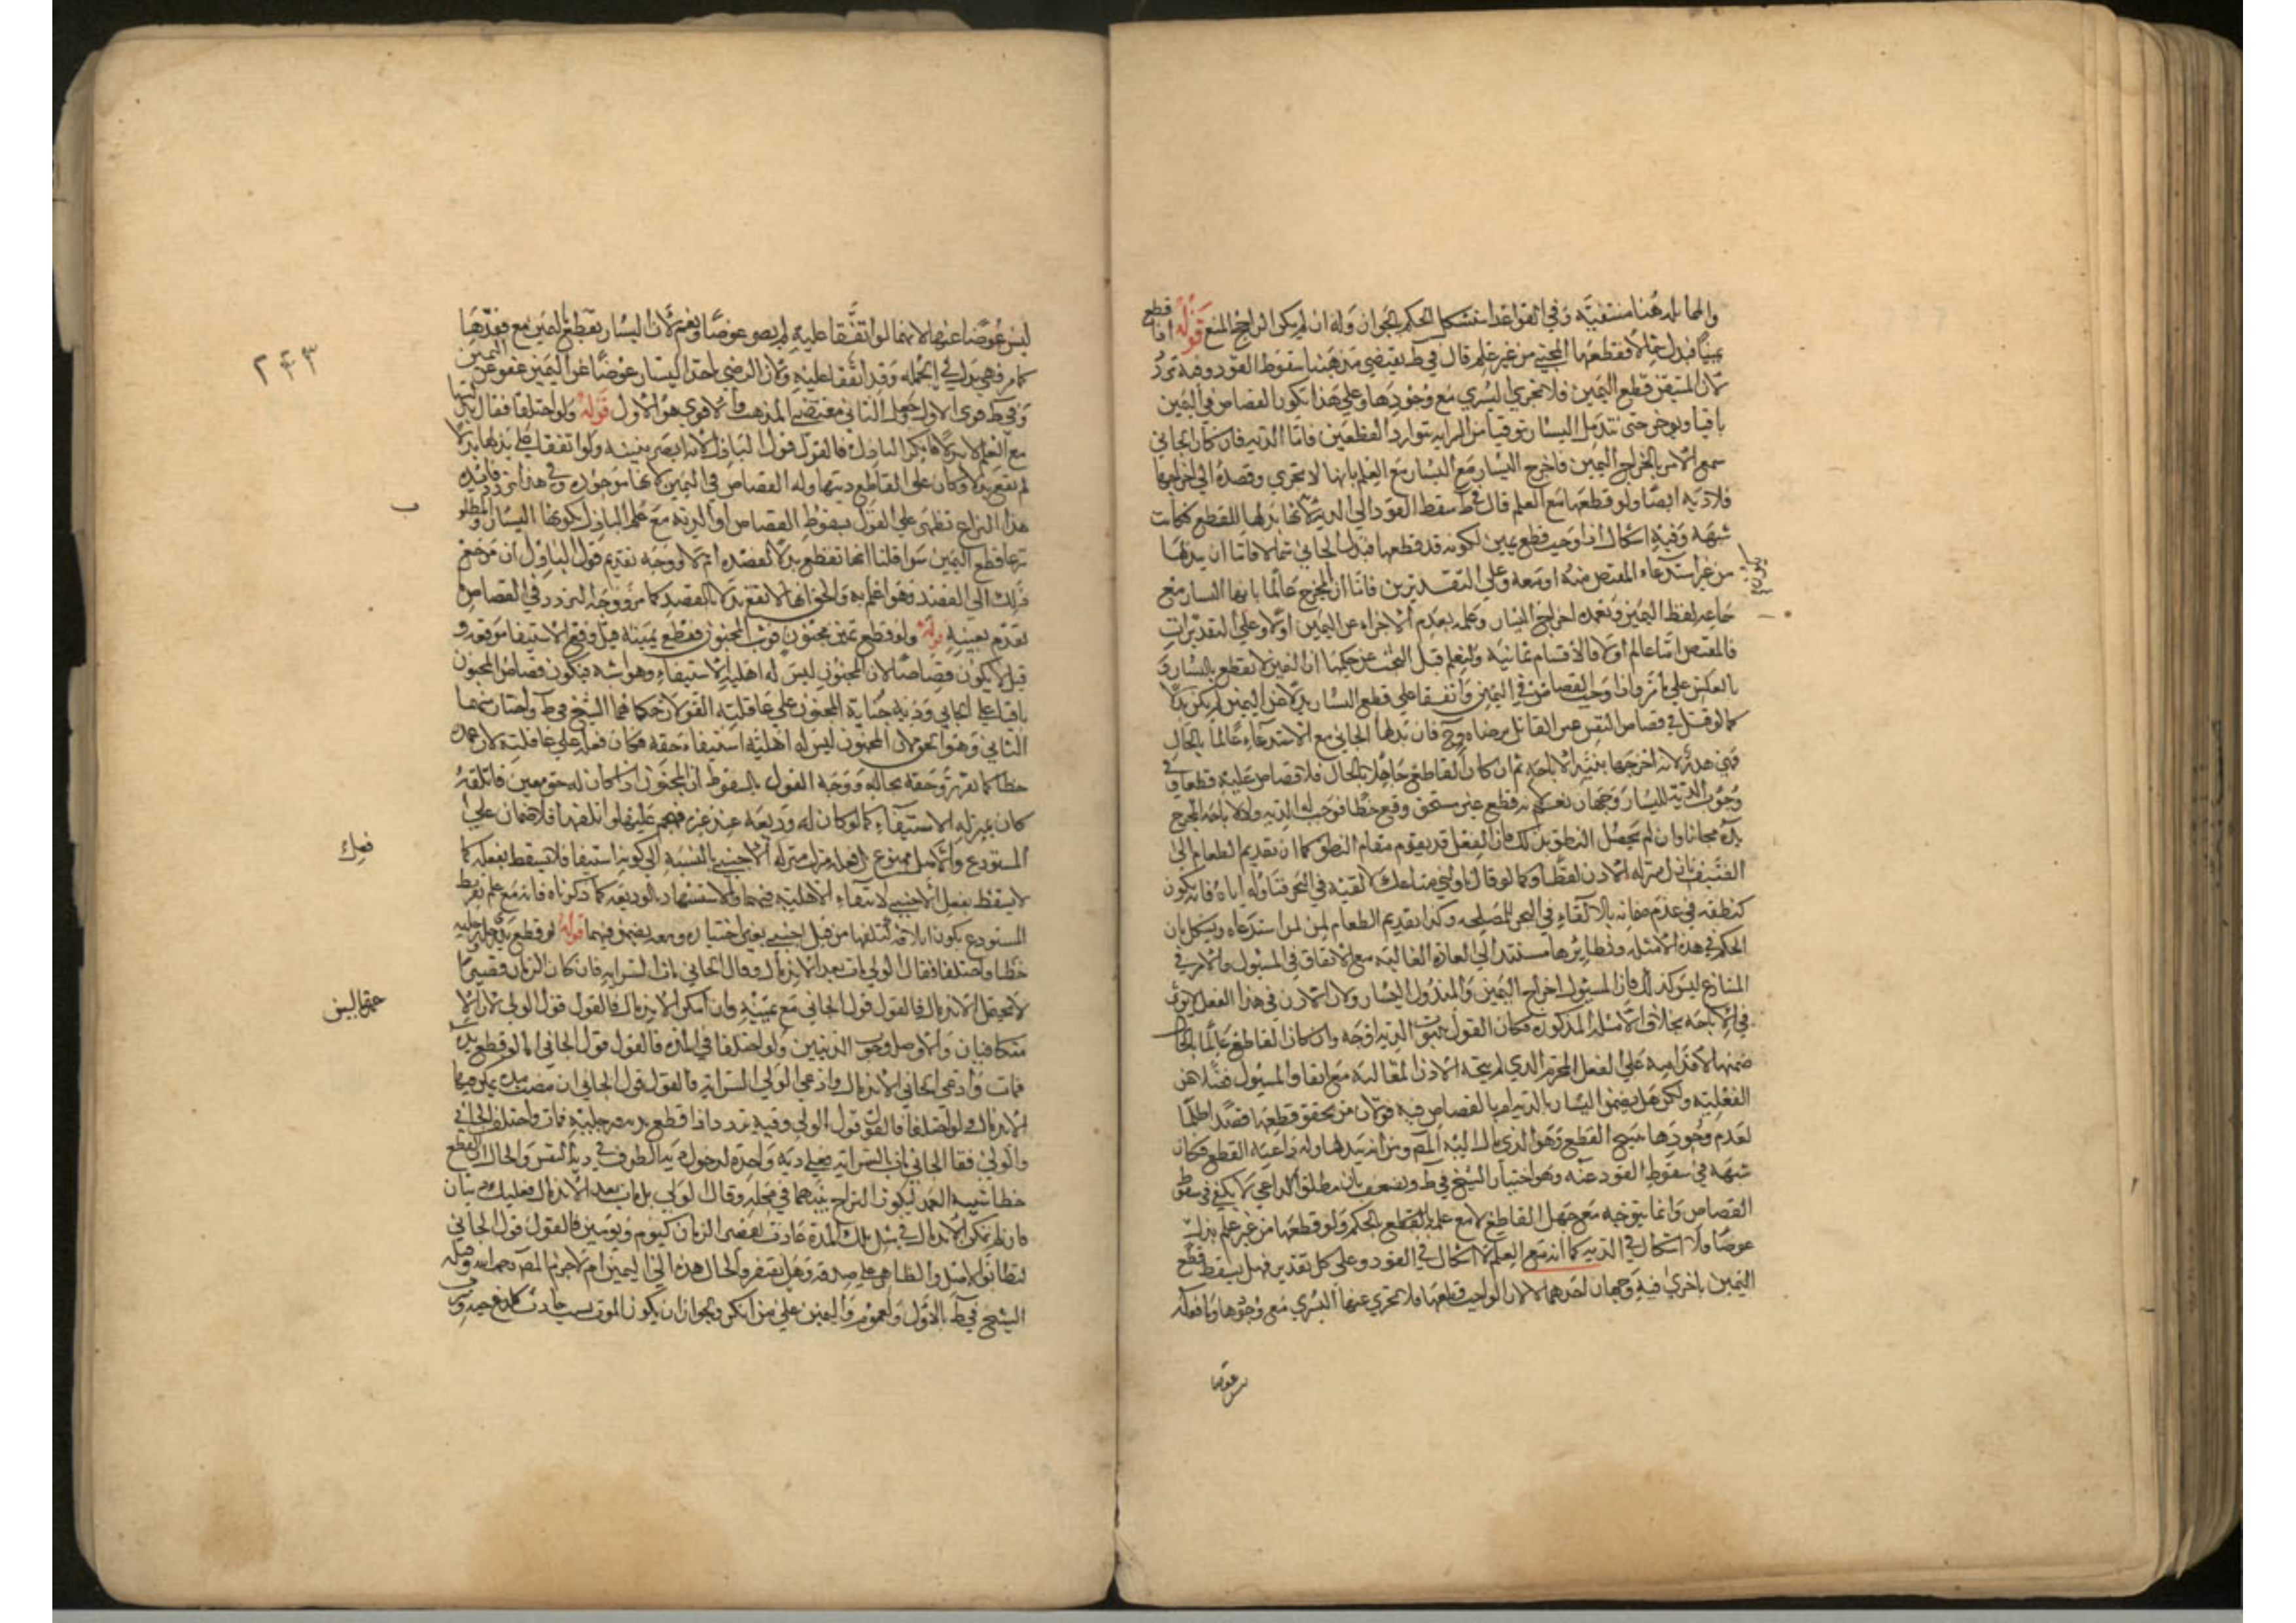 والمماثلة هنا منتفية وفي القواعد استشكل الحكم بالجواز وله ان لم يكن الراجح المنع قوله اذا قطع
يمينا فبذل شمالا فقطعها المجني من غير علم قال في ط يقتضي مذهبنا سقوط القود وفيه تردد
لان المتيقن قطع اليمين فلا تجزي اليسرى مع وجودها وعلى هذا يكون القصاص في اليمين
باقيا ويوخر حتى تندمل اليسار توقيا من السراية بتوارد القطعين فاما الدية فان كان الجاني
سمع الامر باخراج اليمين فاخرج اليسار مع العلم بانها لا تجزي وقصده الى اخراجها
فلا دية ايضا ولو قطعها مع العلم قال في ط سقط القود الى الدية لانها بذلها للقطع فكانت
شبهة وفيه اشكال اذا وجب قطع يمين لكونه قد قطعها فبذل الجاني شمالا فاما ان يبذلها
من غير استدعاء المقتص منه او معه وعلى التقديرين فاما ان المخرج عالما بانها اليسار مع
سماعه لفظ اليمين وتعمده اخراج اليسار وعلمه بعدم الاجزاء عن اليمين او لا وعلى التقديرات
فالمقتص اما عالم او لا فالاقسام ثمانية وليعلم قبل البحث عن حكمها ان اليمين لا تقطع باليسار و
بالعكس على ما مر واذا وجب القصاص في اليمين واتفقا على قطع اليسار بدلا عن اليمين لم يكن بدلا
كما لو قتل في قصاص النفس غير القاتل برضاه وح فان بذلها الجاني مع الاستدعاء عالما بالحال
فهي هدر لانه اخرجها بنية الاباحة ثم ان كان القاطع جاهلا بالحال فلا قصاص عليه قطعا وفي
وجوب الدية لليسار وجهان نعم لانه قطع غير مستحق وقع خطأ فوجب له الدية ولا لاباحة المخرج
يده مجانا وان لم يحصل النطق بذلك فان الفعل قد يقوم مقام النطق كما ان تقديم الطعام الى
الضيف نازل منزلة الاذن لفظا وكما لو قال ناولني متاعك لالقيه في البحر فناوله اياه فانه يكون
كنطقه في عدم ضمانه بالالقاء في البحر للمصلحة وكذا تقديم الطعام لمن استدعاه ويشكل بان
الحكم في هذه الامثلة ونظائرها مستند الى العادة الغالبة مع الاتفاق في المسئول والامر في
المنازع ليس كذلك فان المسئول اخراج اليمين والمبذول اليسار ولان الاذن في هذا الفعل لا يوثر
في الاباحة بخلاف الامثلة المذكورة فكان القول بثبوت الدية اوجه وان كان القاطع عالما بالحال
ضمنها لاقدامه على الفعل المحرم الذي لم يبحه الاذن
الفعلية ولكن هل يضمن اليسار بالدية ام بالقصاص فيه قولان من تحقق قطعها قصدا ظلما
لعدم وجودها مبيح القطع وهو الذي مال اليه المص ومن انه بذلها وله داعية القطع فكان
شبهة في سقوط القود عنه وهو اختيار الشيخ في ط ويضعف بان مطلق الداعي لا يكفي في سقوط
القصاص وانما يتوجه مع جهل القاطع لا مع علمه بالحكم ولو قطعها من غير علم بذلت
عوضا ولا اشكال في الدية كما انه مع العلم لا اشكال في القود وعلى كل تقدير فهل يسقط قطع
اليمين باخرى فيه وجهان احدهما لا لان الواجب قطعها فلا تجزي عنها اليسرى مع وجودها وما فعله
ليس عوضا
ليس عوضا عنها لانهما لو اتفقا عليه لم يصر عوضا ونعم لان اليسار تقطع باليمين مع فقدها
كما مر فهي بدل في الجملة وقد اتفقا عليه ولان الرضى باخذ اليسار عوضا عن اليمين عفو عن اليمين
وفي ط قوى الاول وجعل الثاني مقتضى المذهب والاقوى هو الاول قوله ولو اختلفا فقال بذلتها
مع العلم لا بدلا فانكر الباذل فالقول قول الباذل لانه ابصر بنيته ولو اتفقا على بذلها بدلا
لم تقع بدلا وكان على القاطع ديتها وله القصاص في اليمين لانها موجودة وفي هذا تردد فائدة
هذا النزاع تظهر على القول بسقوط القصاص او الدية مع علم الباذل بكونها اليسار والمطلو
شرعا قطع اليمين سوا قلنا انها تقطع بدلا لقصده ام لا ووجه تقديم قول الباذل ان مرجع
ذلك الى القصد وهو اعلم به والحق انها لا تقع بدلا بالقصد كما مر ووجه التردد في القصاص
تقدم بعينه قوله ولو قطع يمين مجنون فوثب المجنون فقطع يمينه قيل وقع الاستيفا موقعه و
قيل لا يكون قصاصا لان المجنون ليس له اهلية الاستيفاء وهو اشبه فيكون قصاص المجنون
باقيا على الجاني ودية جناية المجنون على عاقلته القولان حكاهما الشيخ في ط واختار منهما
الثاني وهو الحق لان المجنون ليس له اهلية استيفاء حقه فكان فعله على عاقلته لان عمده
خطا كما تقرر وحقه بحاله ووجه القول بالسقوط ان المجنون اذا كان له حق معين فاتلفه
كان بمنزلة الاستيفاء كما لو كان له وديعة عند غيره فهجم عليها واتلفها فلا ضمان على
المستودع والاصل ممنوع بل فعله نزل منزلة الاجنبي بالنسبة الى كونه استيفا فلا يسقط بفعله كما
لا يسقط بفعل الاجنبي لانتفاء الاهلية فيهما والاستشهاد بالوديعة كما ذكرناه فانه مع عدم تفريط
المستودع يكون اتلافه كتلفها من قبل اجنبي بغير اختياره ومعه يضمن فيهما قوله لو قطع يديه ورجليه
خطا واختلفا فقال الولي مات بعد الاندمال وقال الجاني مات بالسراية فان كان الزمان قصيرا
لا يحتمل الاندمال فالقول قول الجاني مع يمينه وان امكن الاندمال فالقول قول الولي لان الا
متكافيان والاصل وجوب الديتين ولو اختلفا في المدة فالقول قول الجاني اما لو قطع يده
فمات وادعى الجاني الاندمال وادعى الولي السراية فالقول قول الجاني ان مضت مدة يمكن فيها
الاندمال ولو اختلفا فالقول قول الولي وفيه تردد اذا قطع يديه ورجليه فمات واختلف الجاني
والولي فقال الجاني مات بالسراية فعلي دية واحدة لدخول دية الطرف في دية النفس والحال ان القطع
خطا شبيه العمد ليكون النزاع بينهما في محله وقال الولي بل مات بعد الاندمال فعليك ديتان
فان لم يمكن الاندمال في مثل تلك المدة عادة لقصر الزمان كيوم ويومين فالقول قول الجاني
لتطابق الاصل والظاهر على صدقه وهل يفتقر والحال هذه الى اليمين ام لا جزم المص رحمه الله وقبله
الشيخ في ط بالاول لعموم واليمين على من انكر ولجواز ان يكون الموت بسبب حادث
٢٤٣
ب